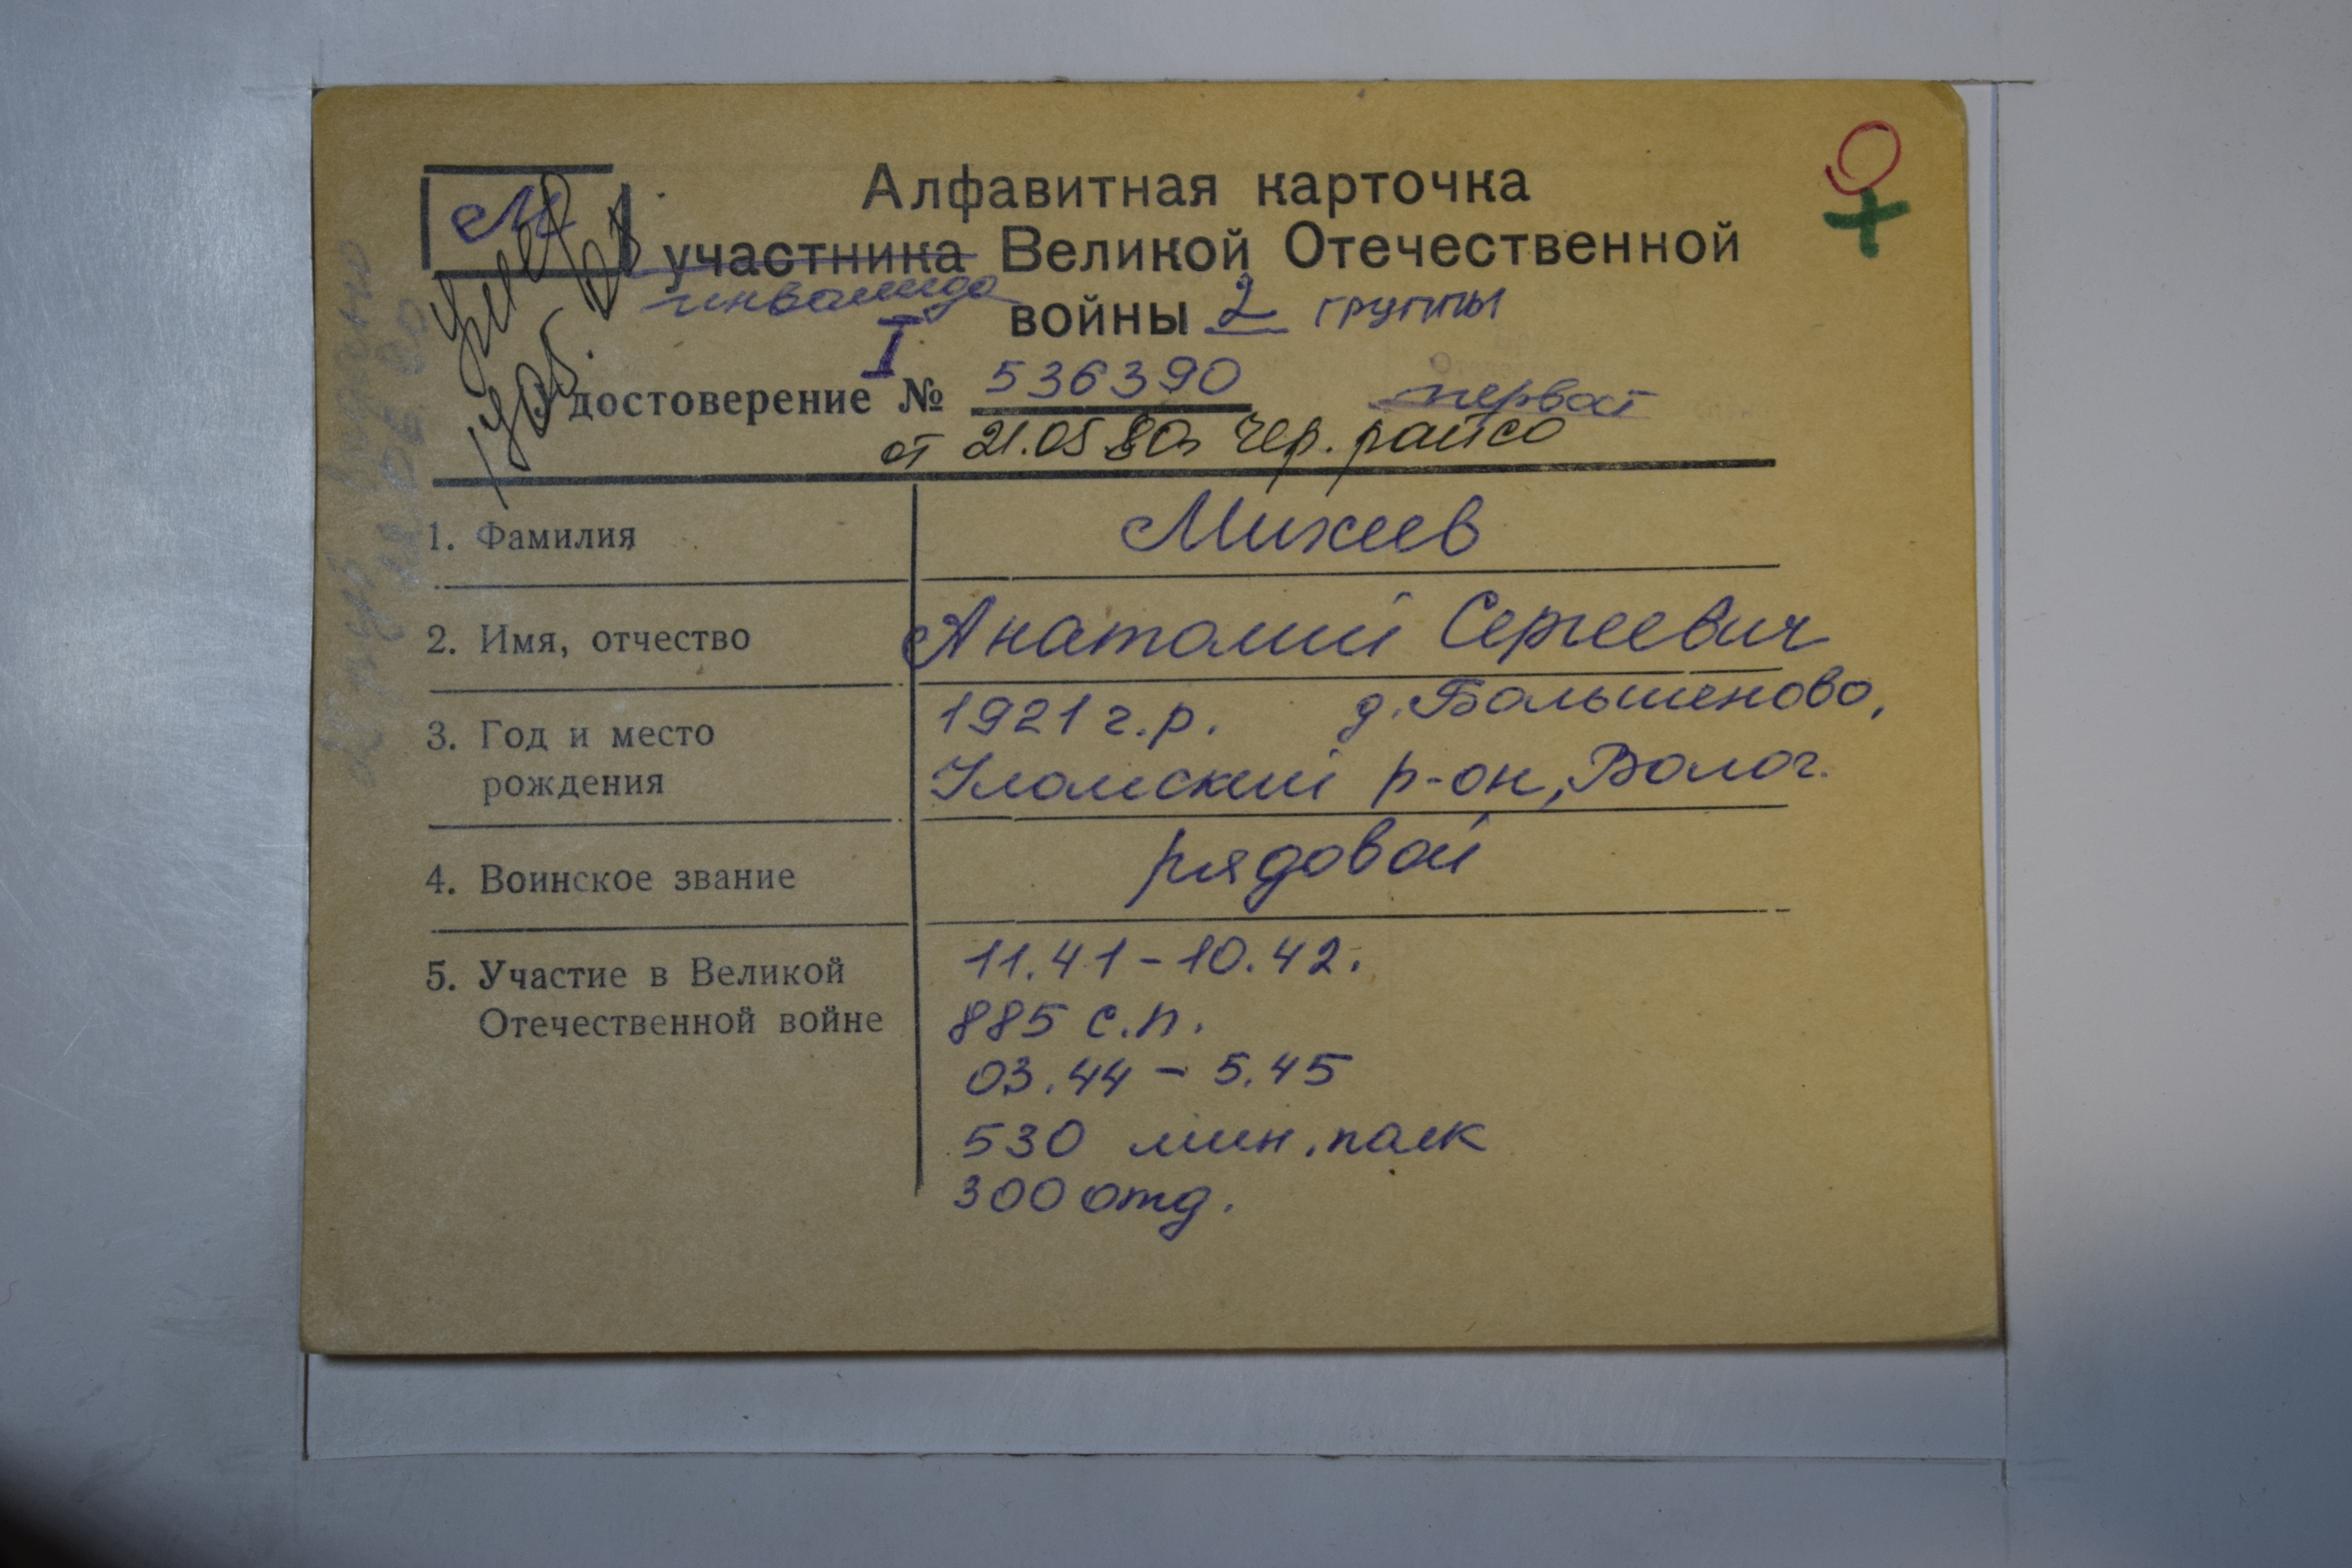 М
Алфавитная карточка
участника Великой Отечественной
инвалида
войны 2 группы
I
достоверение № 536390
первая
от 21.05 80г Чер. райсо
умер
1. Фамилия Михеев
2. Имя, отчество Анатолий Сергеевич
3. Год и место 1921 г.р. д. Большеново,
рождения Уломский р-он, Волог.
4. Воинское звание рядовой
5. Участие в Великой 11.41-10.42.
Отечественной войне 885 с.п.
03.44 - 5.45
530 мин. полк
300 отд.